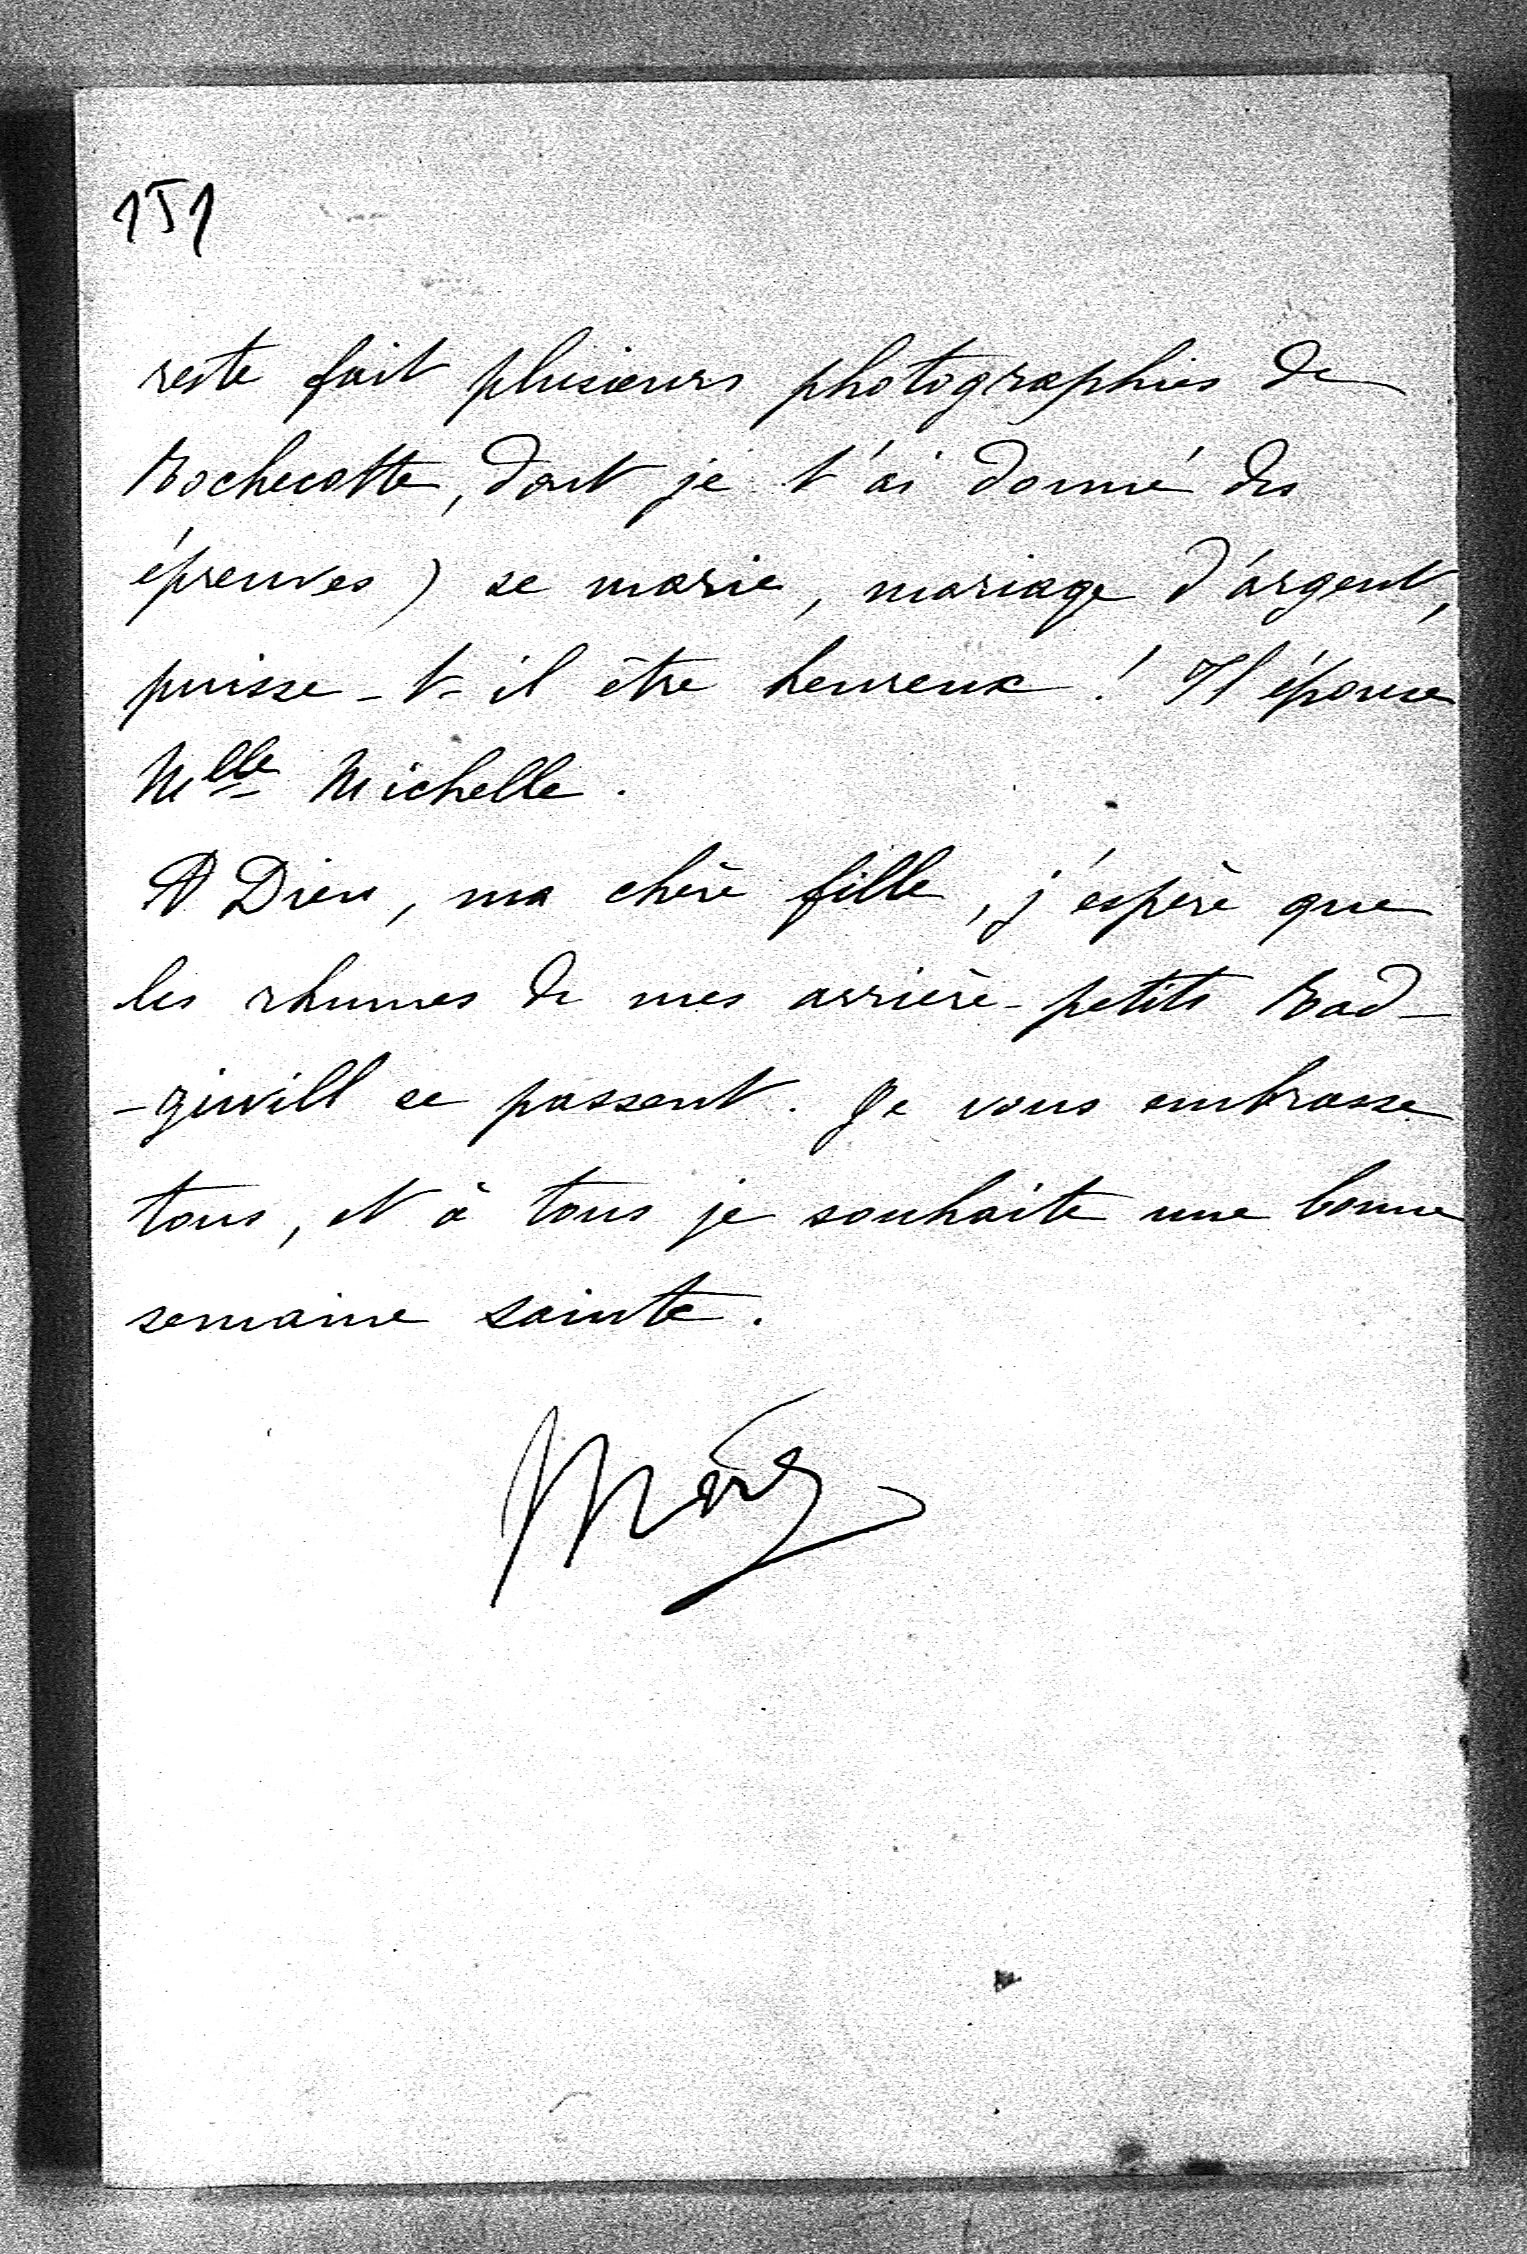 151
reste fait plusieurs photographies de
Rochecotte, dont je t'ai donné des
épreuves) se marie, mariage d'argent,
puisse-t-il être heureux ! Il épouse
Mlle Michelle.
A Dieu, ma chère fille, j'espère que
les rhumes de mes arrière-petits Rad-
-ziwill se passent. Je vous embrasse
tous, et à tous je souhaite une bonne
semaine sainte.